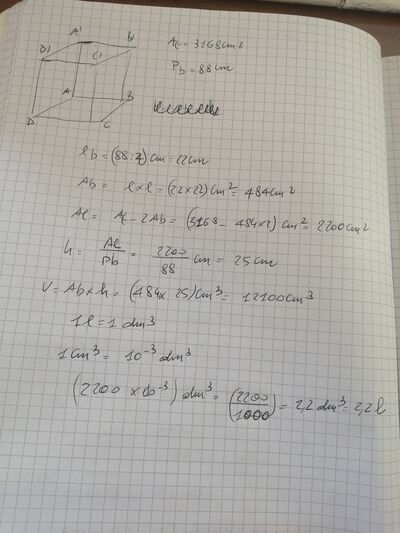 A' B' At = 3168 cm²
D' C' Pb = 88 cm
A B
D C
lb = (88:4) cm = 22 cm
Ab = l×l = (22×22) cm² = 484 cm²
Al = At - 2Ab = (3168 - 484×2) cm² = 2200 cm²
h = Al/Pb = 2200/88 cm = 25 cm
V = Ab×h = (484×25) cm³ = 12100 cm³
1l = 1 dm³
1cm³ = 10⁻³ dm³
(2200 ×10⁻³) dm³ = (2200/1000) = 2,2 dm³ = 2,2 l